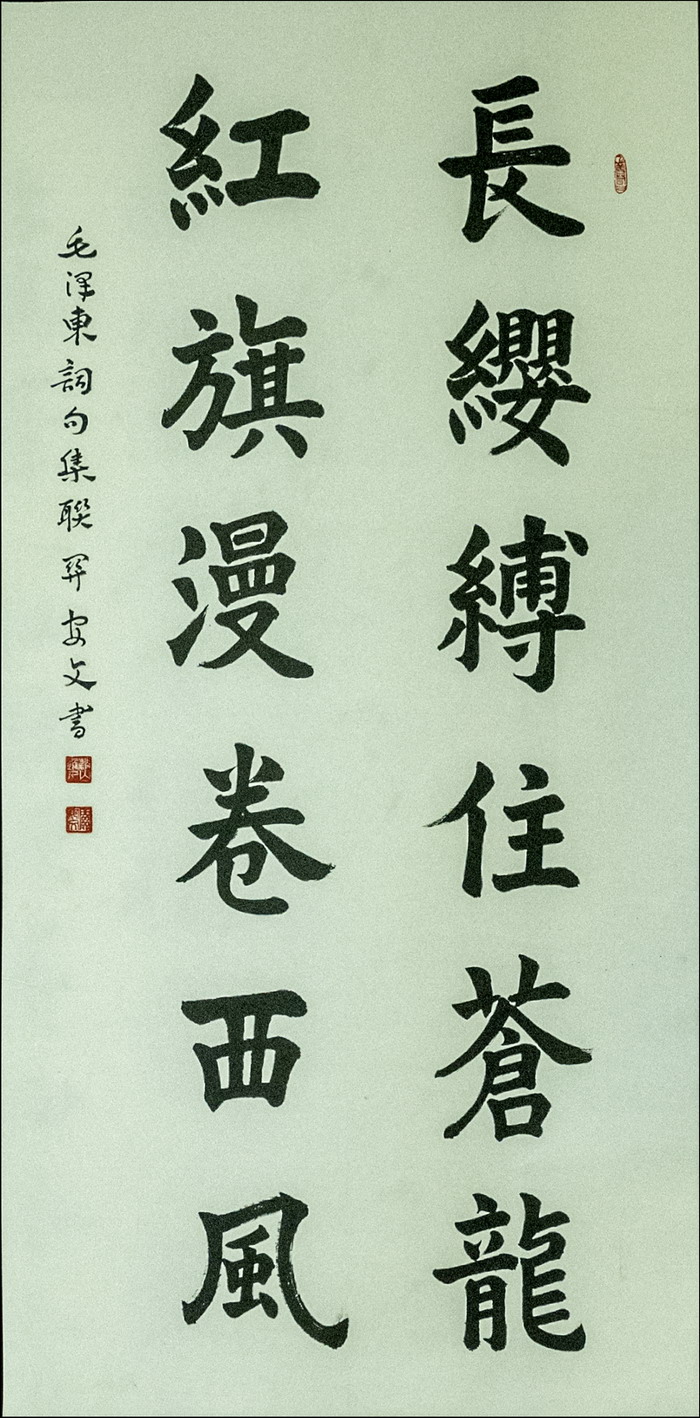 長纓縛住蒼龍
紅旗漫卷西風
毛澤東詞句集聯 安文書